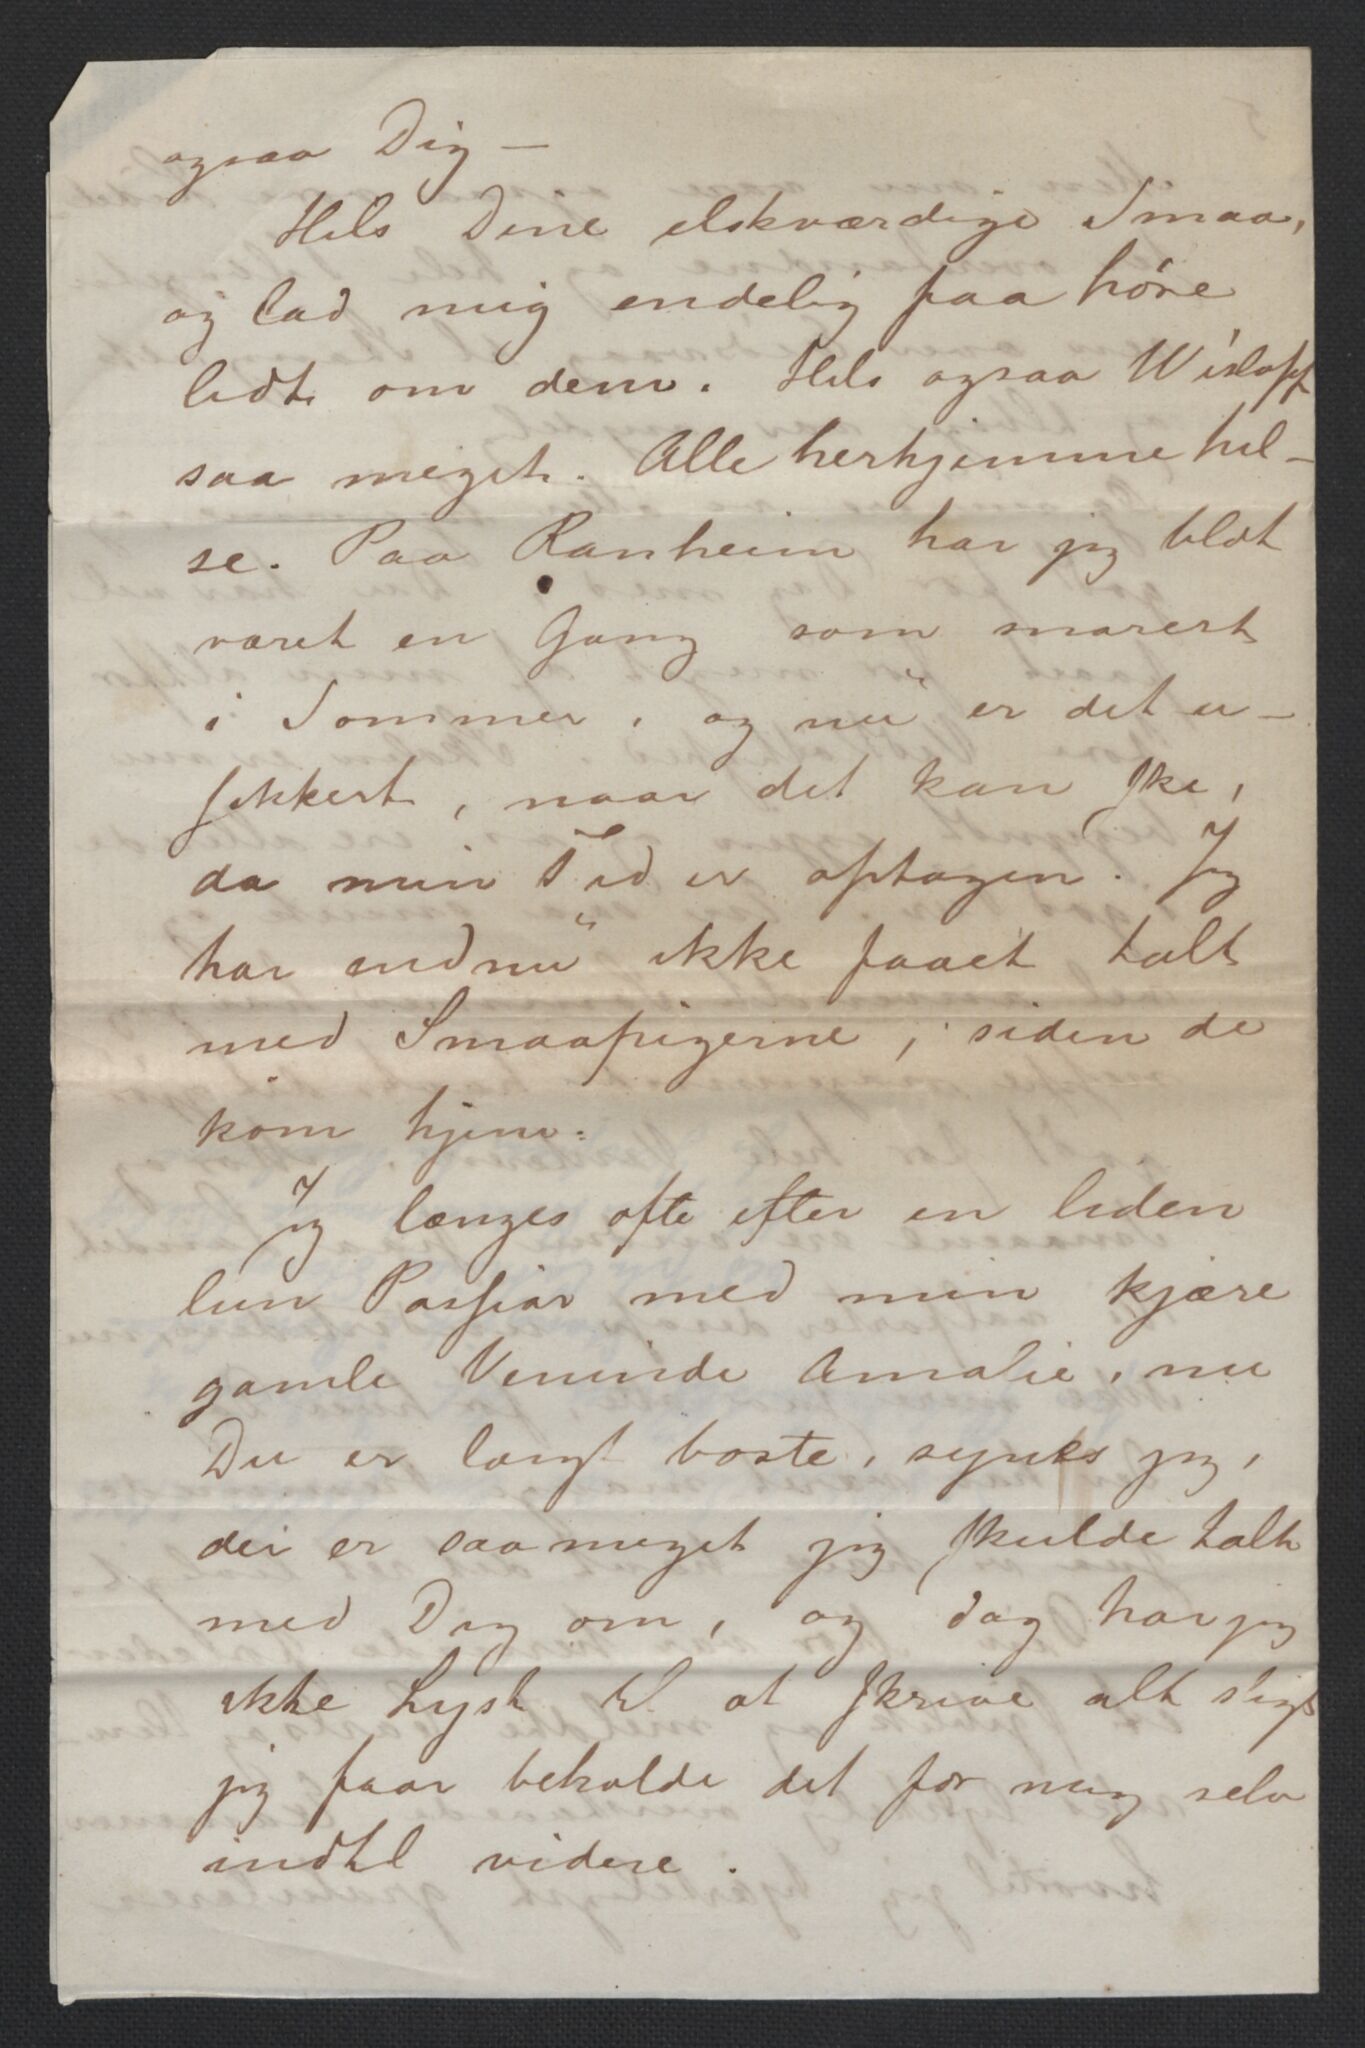 ogsaa Dig —
Hils Dine elskværdige Smaa,
og lad mig endelig faa høre
lidt om dem. Hils ogsaa Wisløff
saa meget. Alle herhjemme hil-
se. Paa Ranheim har jeg blot
været en Gang som snarest
i Sommer, og nu er det u-
sikkert, naar det kan ske,
da min Tid er optagen. Jeg
har endnu ikke faaet talt
med Smaapigerne, siden de
kom hjem.
Jeg længes ofte efter en liden
lun Passiar med min kjære
gamle Veninde Amalie, nu
Du er langt borte, synes jeg,
der er saameget jeg skulde talt
med Dig om, og idag har jeg
ikke Lyst til at skrive alt sligt
jeg faar beholde det for mig selv
indtil videre.